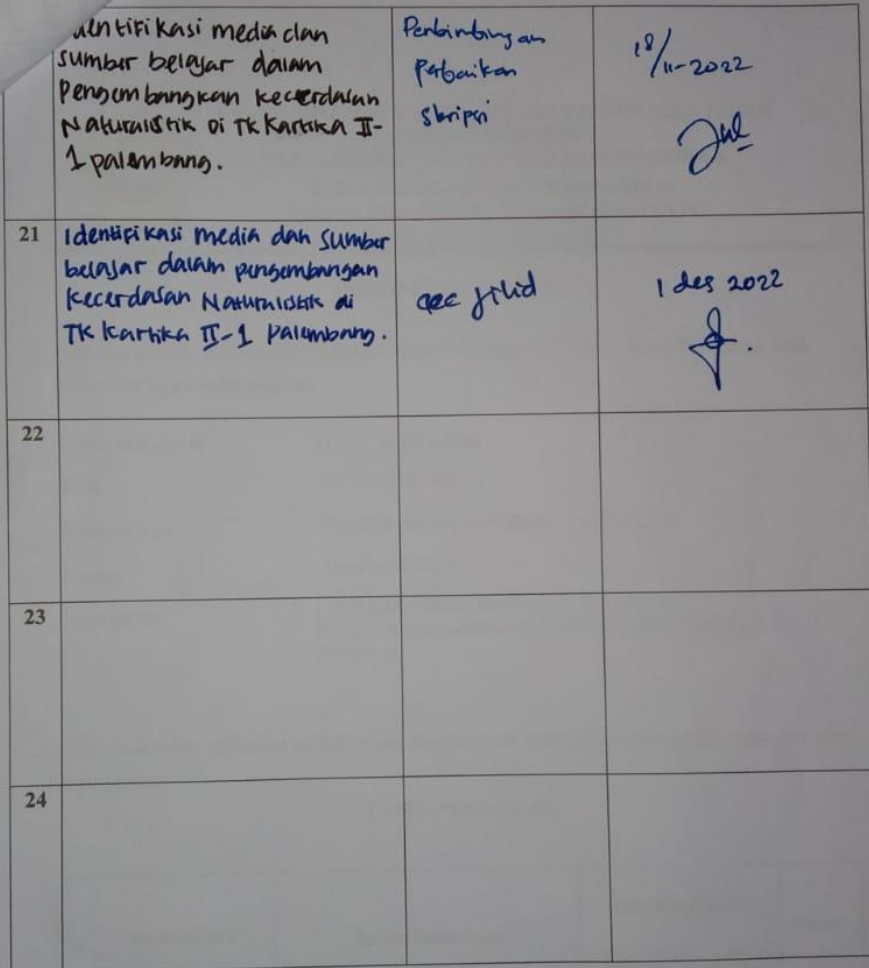 dentifikasi media dan
sumber belajar dalam
Pengembangkan kecerdasan
Naturalistik Di TK Kartika II-
1 palembang.
Perbimbingan
Perbaikan
skripsi
18/11-2022
21
Identifikasi media dan sumber
belajar dalam pengembangan
kecerdasan Naturalistik di
TK Kartika II-1 Palembang.
acc jilid
1 des 2022
22
23
24